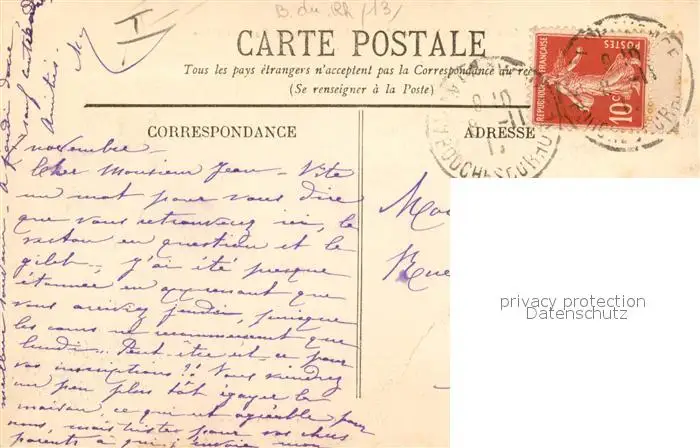 B. du Rh (13)
CARTE POSTALE
Tous les pays étrangers n'acceptent pas la Correspondance au rec
(Se renseigner à la Poste)
CORRESPONDANCE
ADRESSE
REPUBLIQUE FRANÇAISE
POSTES
10c
BOUCHES DU RHO
privacy protection
Datenschutz
Mo
Rue
novembre
Cher Monsieur Jean - Vite
un mot pour vous dire
que vous retrouverez ici, le
veston en question et le
gilet, j'ai été presque
étonnée en apprenant que
vous arriviez jeudi, puisque
les cours ne recommencent que
lundi... Peut-être est-ce pour
vos inscriptions?? Vous viendrez
un peu plus tôt égayer la
maison, ce qui est agréable pour
nous, mais triste pour vos chers
parents à qui j'envoie mon
meilleur souvenir - à jeudi donc
sauf
Amitiés